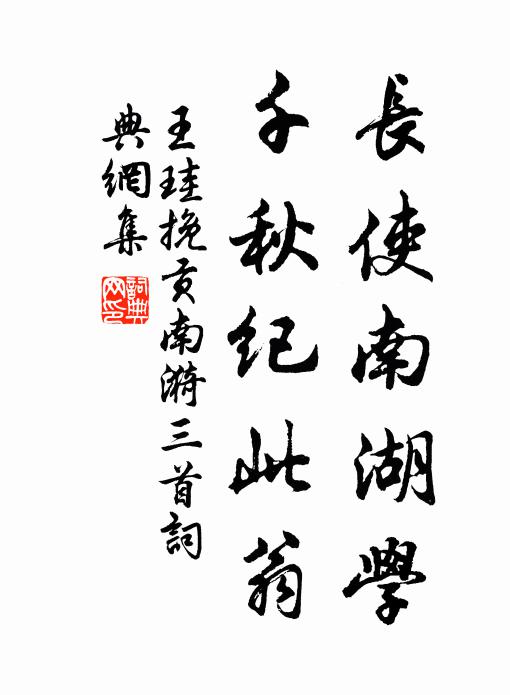 長使南湖學
千秋纪此翁
王珪挽贡南漪三首詞
典網集
詞典
网印